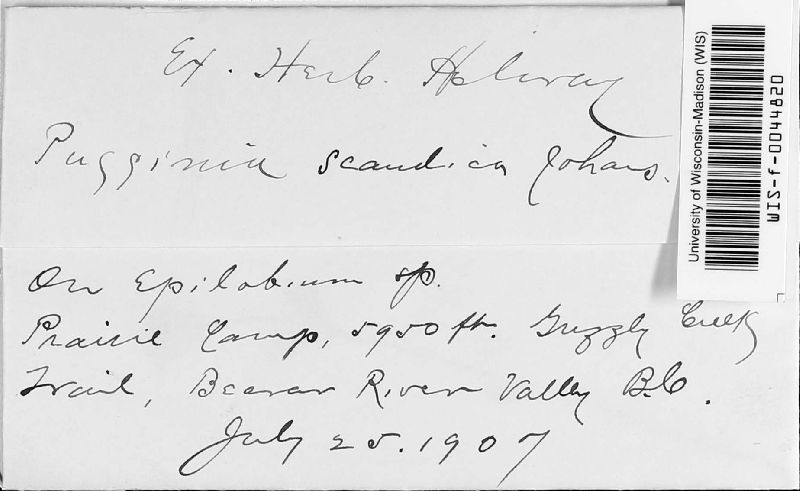 Ex. Herb. Holway
Puccinia scandica Johans.
On Epilobium sp.
Prairie Camp, 5950 ft. Grizzly Creek
Trail, Beaver River Valley B.C.
July 25. 1907
University of Wisconsin-Madison (WIS)
WIS-f-0044820